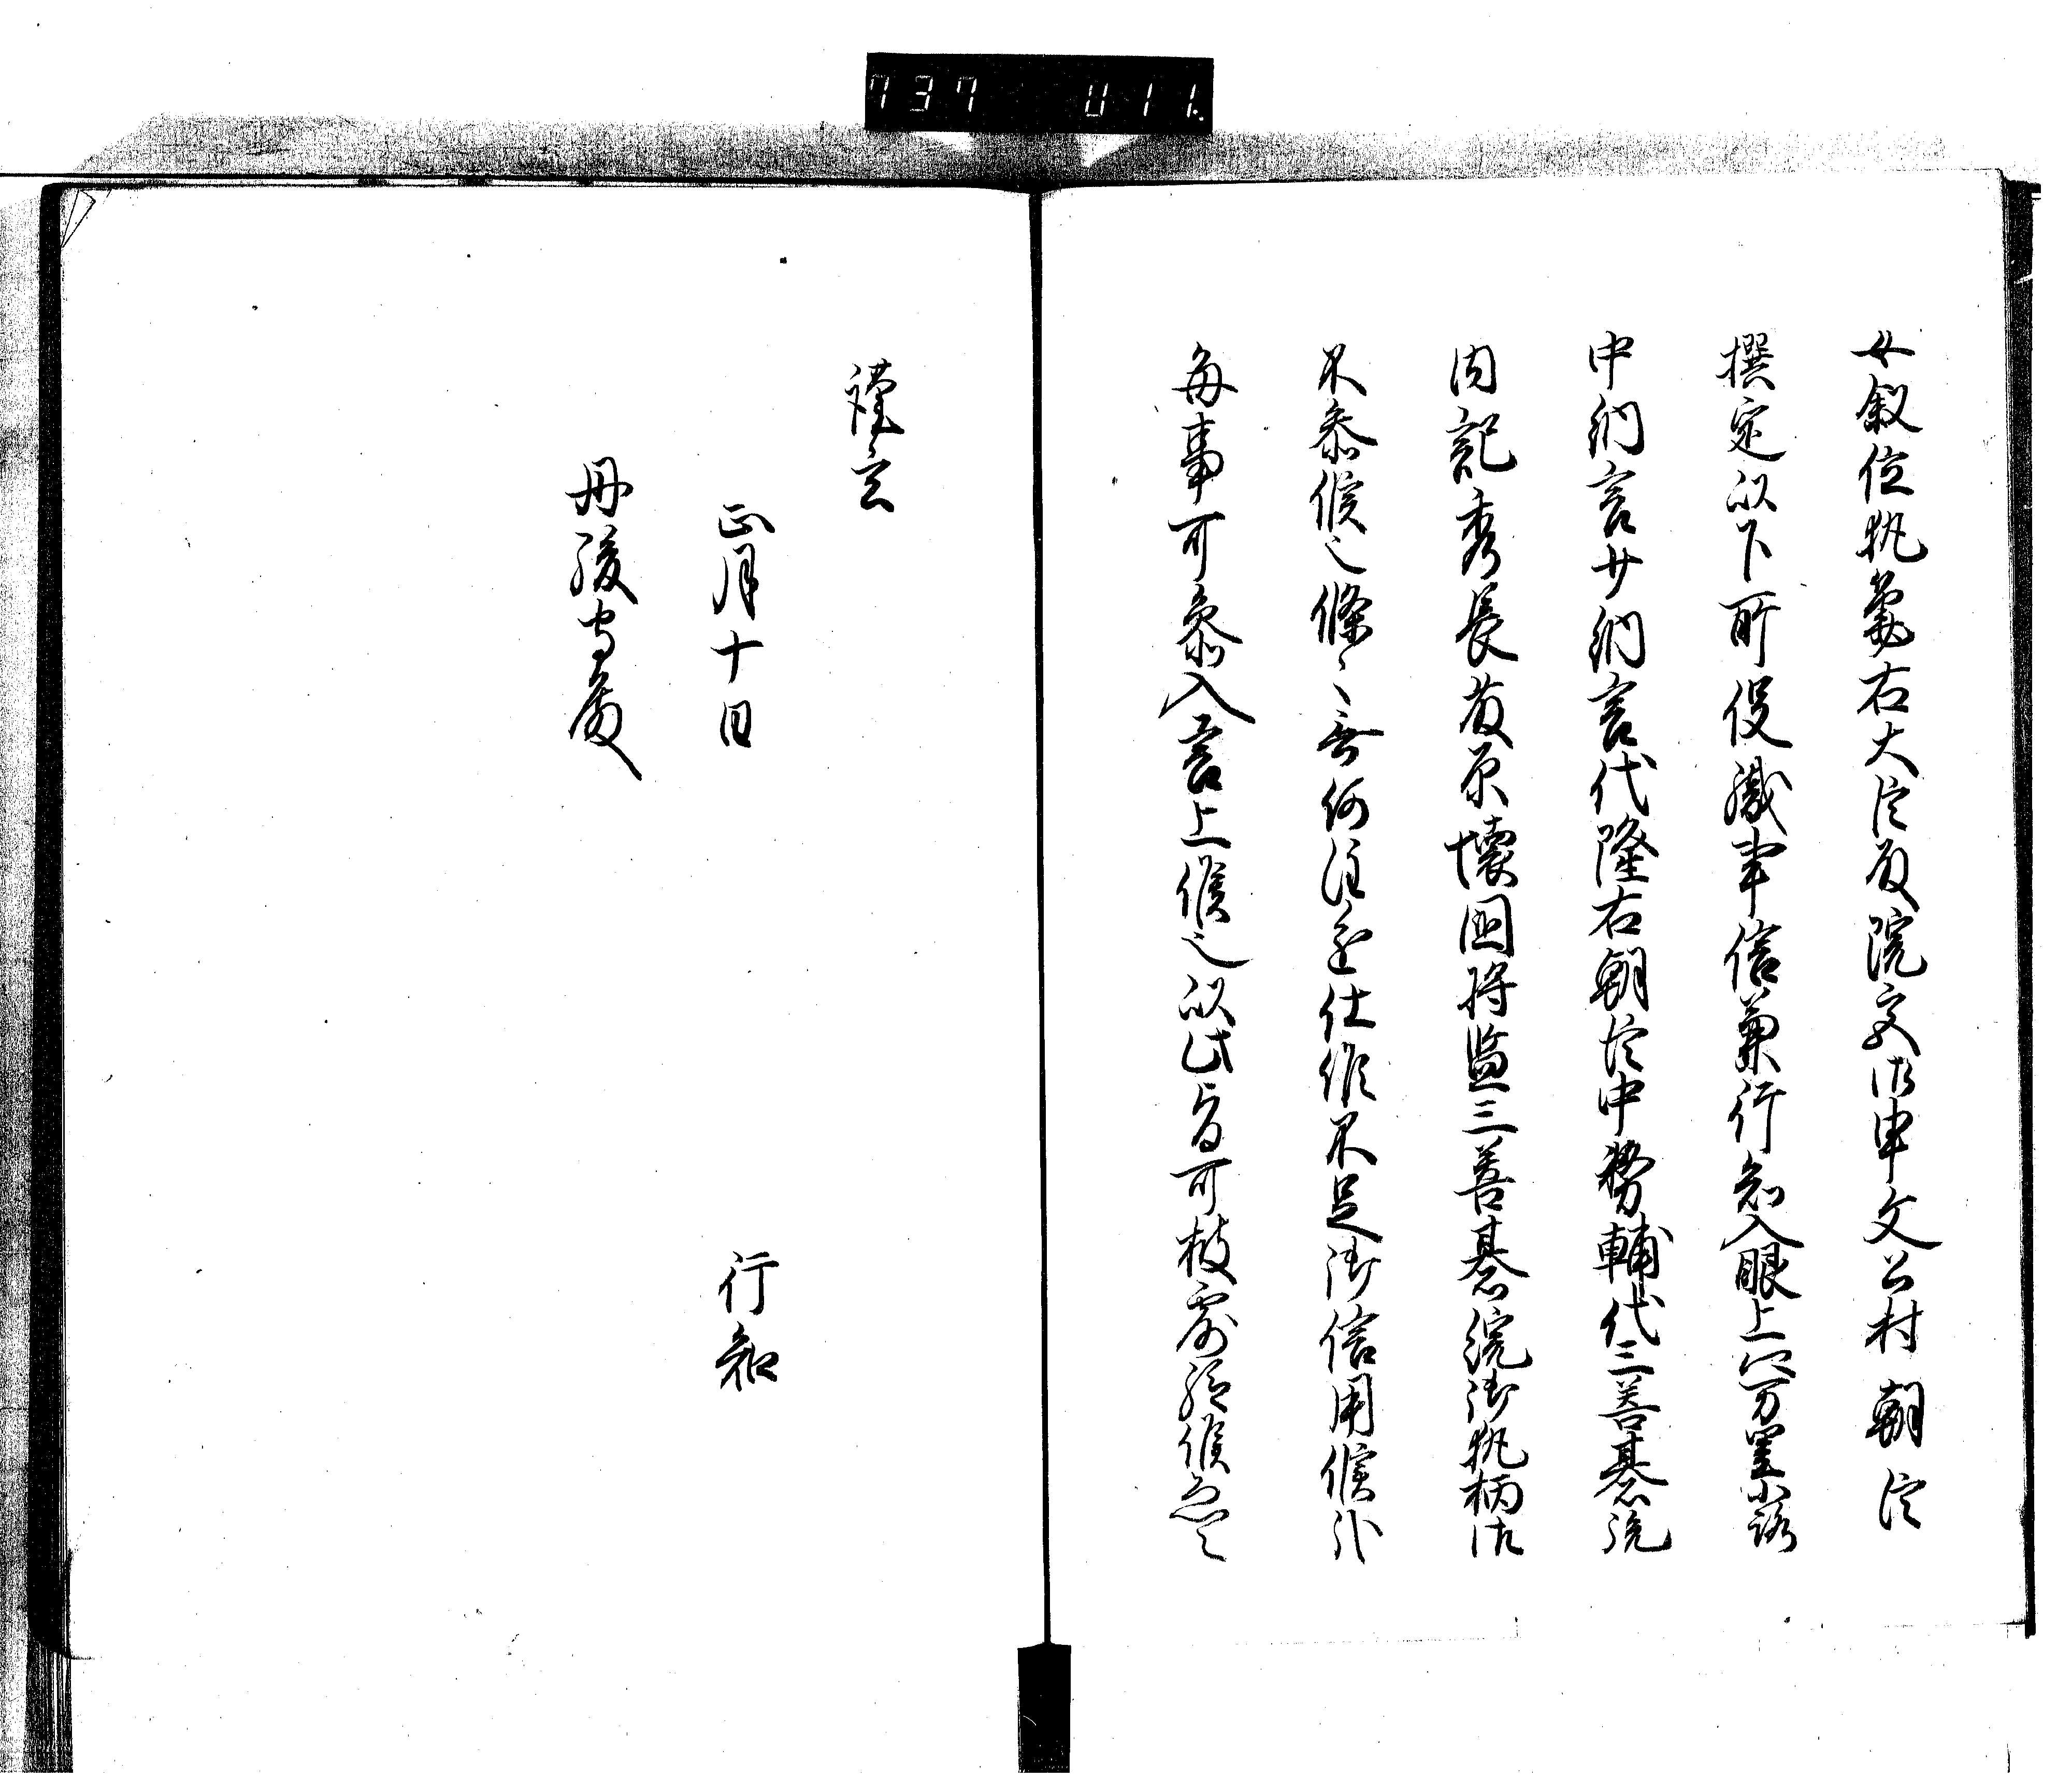 737 011.
女叙位執筆右大臣殿院宮御申文公村朝臣
撰定以下所役職事信兼行知入眼上卿万里小路
中納言少納言代隆右朝臣中務輔代三善碁統
内記秀長菅原懐国将監三善碁統御執柄御
不参候之條々無何注進仕候不足御信用候歟
毎事可参入言上候之以此旨可被露給候恐々
謹言
正月十日 行知
丹後守殿